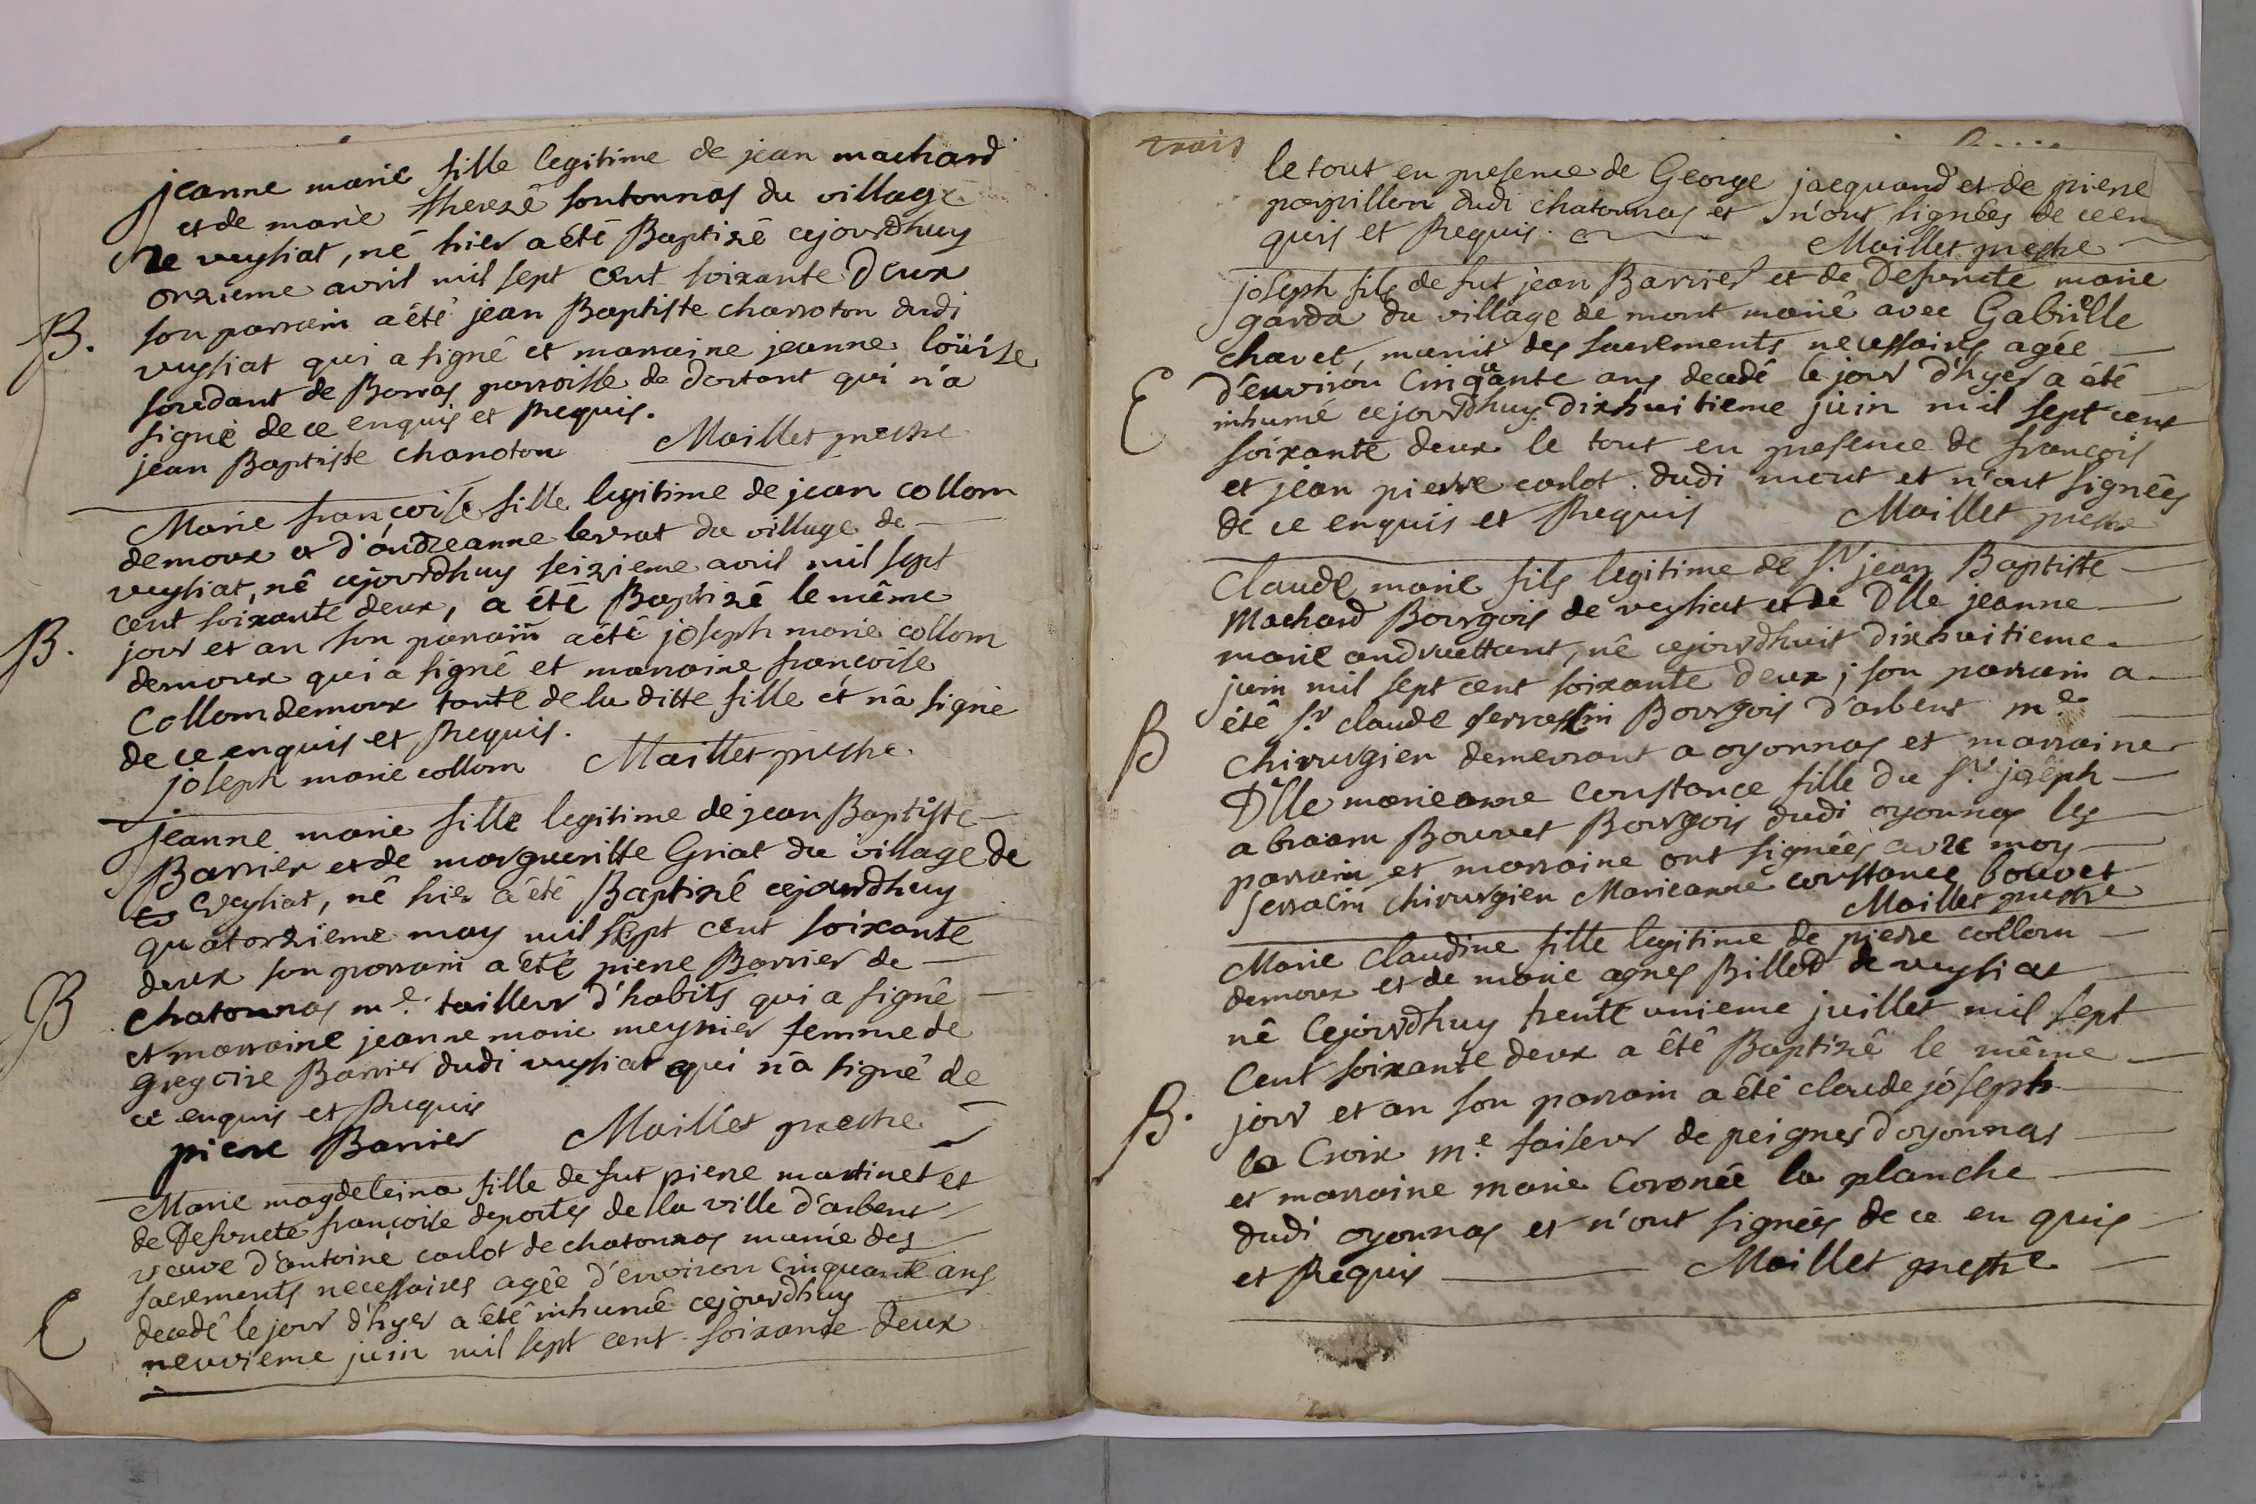 jeanne marie fille legitime de jean machard
et de marie therezê soutonnas du village
de veysiat, nê hier a étê Baptizê cejourdhuy
onzieme avril mil sept cent soixante deux
B.
son parrain a étê jean Baptiste charroton dudi
veysiat qui a signê et marraine jeanne loüise
soudant de Borras parroisse de dortant qui n'a
signê de ce enquis et Requis.
jean Baptiste charroton Maillet prestre
Marie françoise fille legitime de jean collom
demoux et d'oudreanne levrat du village de
veysiat, nê cejourdhuy seizieme avril mil sept
cent soixante deux, a étê Baptizê le même
B.
jour et an son parrain a été joseph marie collom
demoux qui a signê et marraine françoise
Collomdemoux tante de la ditte fille et n'a signê
de ce enquis et Requis.
joseph marie collom Maillet prestre.
jeanne marie fille legitime de jean Baptiste
Barrier et de margueritte Griat du village de
veysiat, nê hier a étê Baptizê cejourdhuy
quatorzieme may mil sept cent soixante
deux son parrain a étê piere Barrier de
B
chatonnas me. tailleur d'habits qui a signê
et marraine jeanne marie meynier femme de
gregoire Barrier dudi veysiat qui n'a signê de
ce enquis et Requis
piere Barrier Maillet prestre
Marie magdeleina fille de fut piere martinet et
de Defuncte françoise deportes de la ville d'arbent
veuve d'antoine carlot de chatonnas munie des
sacrements necessaires agêe d'environ Cinquante ans
E
decedê le jour d'hyer a étê inhumê cejourdhuy
neuvieme juin mil sept cent soixante deux
trois
le tout en presence de George jacquand et de piere
papillon dudi chatonnas et n'ont signêes de ce en
quis et Requis. Maillet prestre
joseph fils de fut jean Barrier et de Defuncte marie
garda du village de mont mariê avec Gabrielle
chavet, munit des sacrements necessaires agêe
E
d'environ Cinqante ans decedê le jour d'hyer a étê
inhumê cejourdhuy dixhuitieme juin mil sept cent
soixante deux le tout en presence de françois
et jean pierre carlot dudi mont et n'ont signêes
de ce enquis et Requis Maillet prestre
Claude marie fils legitime de Sr. jean Baptiste
Machard Bourgois de veysiat et de Dlle jeanne
marie andruettant, nê cejourdhuit dixhuitieme
juin mil sept cent soixante deux; son parrain a
B
êtê Sr claude serrassin Bourgois d'arbent me
Chirurgien demeurant a oyonnas et marraine
Dlle marieanne Constance fille du Sr. joseph
abraam Bouvet Bourgois dudi oyonnas les
parrain et marraine ont signêes avec moy
serracin chirurgien Marieanne constance bouvet
Maillet prestre
Marie Claudine fille legitime de piere collom
demoux et de marie agnes Billod de veysiat
nê Cejourdhuy trente unieme juillet mil sept
Cent soixante deux a étê Baptizê le même
B.
jour et an son parrain a étê claude jôseph
la Croix me. faiseur de peignes d'oyonnas
et marraine marie Coronêe la planche
dudi oyonnas et n'ont signêes de ce en quis
et Requis Maillet prestre